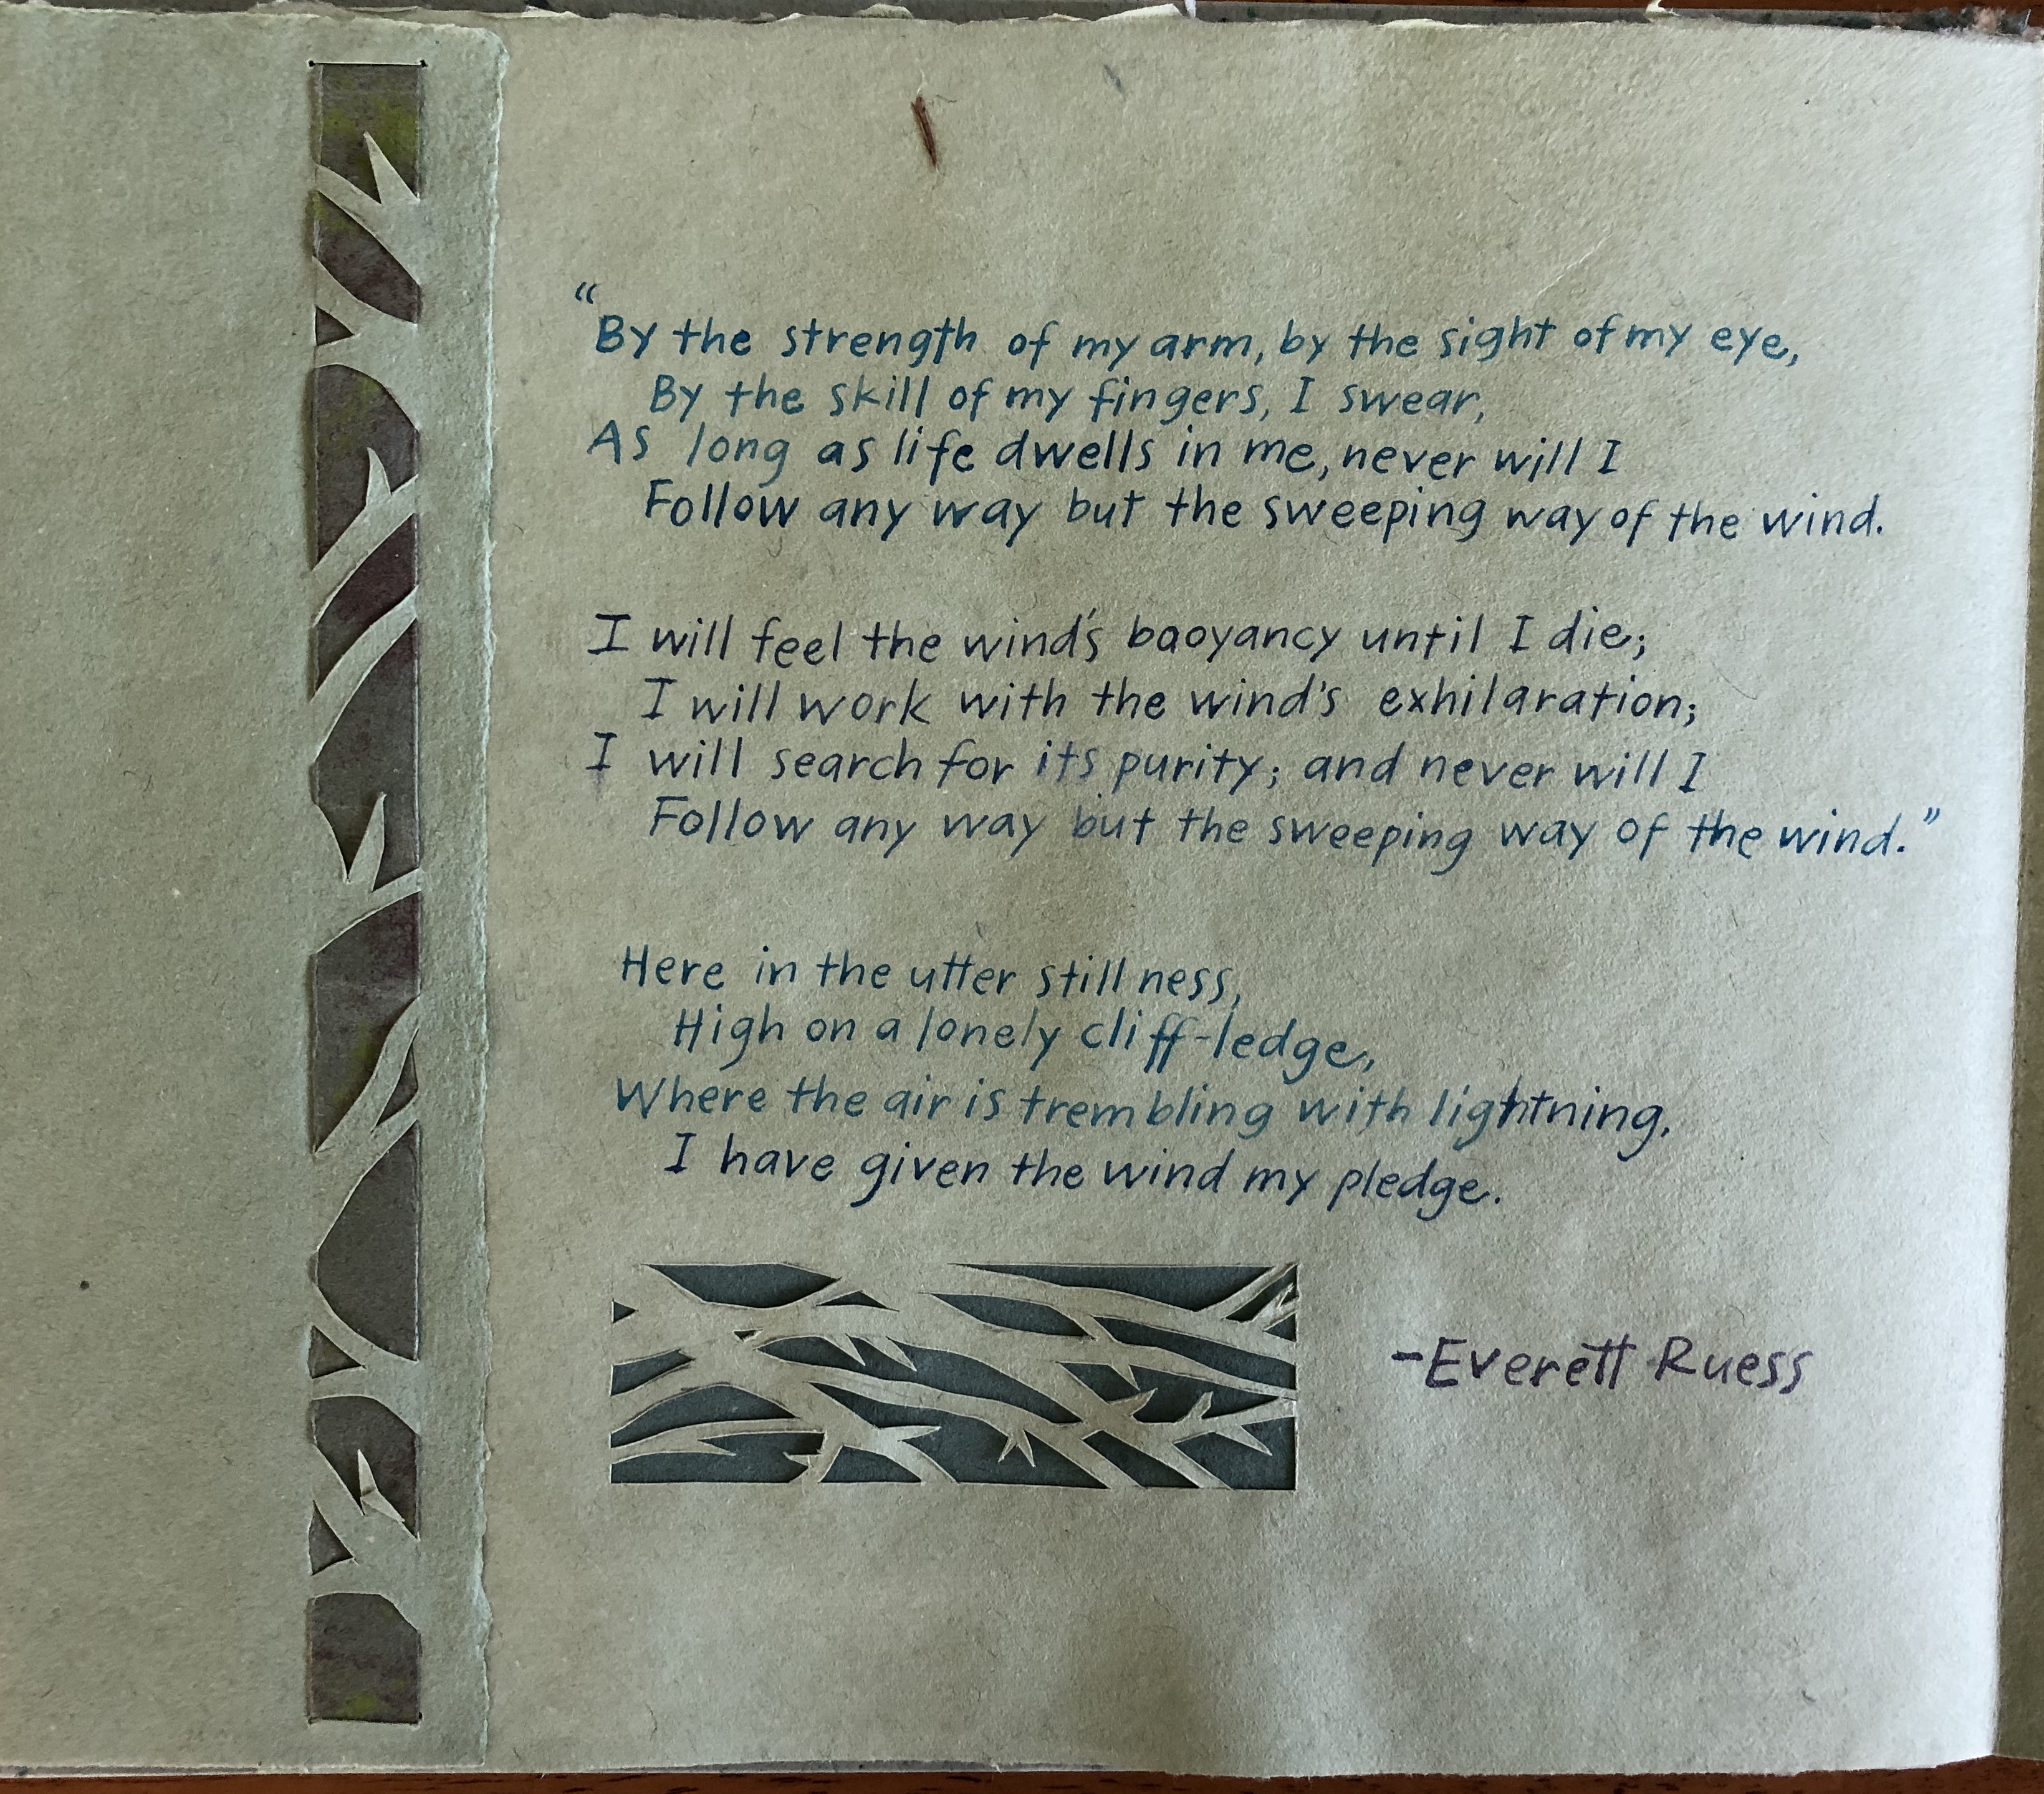 "By the strength of my arm, by the sight of my eye,
By the skill of my fingers, I swear,
As long as life dwells in me, never will I
Follow any way but the sweeping way of the wind.
I will feel the wind's baoyancy until I die;
I will work with the wind's exhilaration;
I will search for its purity; and never will I
Follow any way but the sweeping way of the wind."
Here in the utter stillness,
High on a lonely cliff-ledge,
Where the air is trembling with lightning,
I have given the wind my pledge.
-Everett Ruess